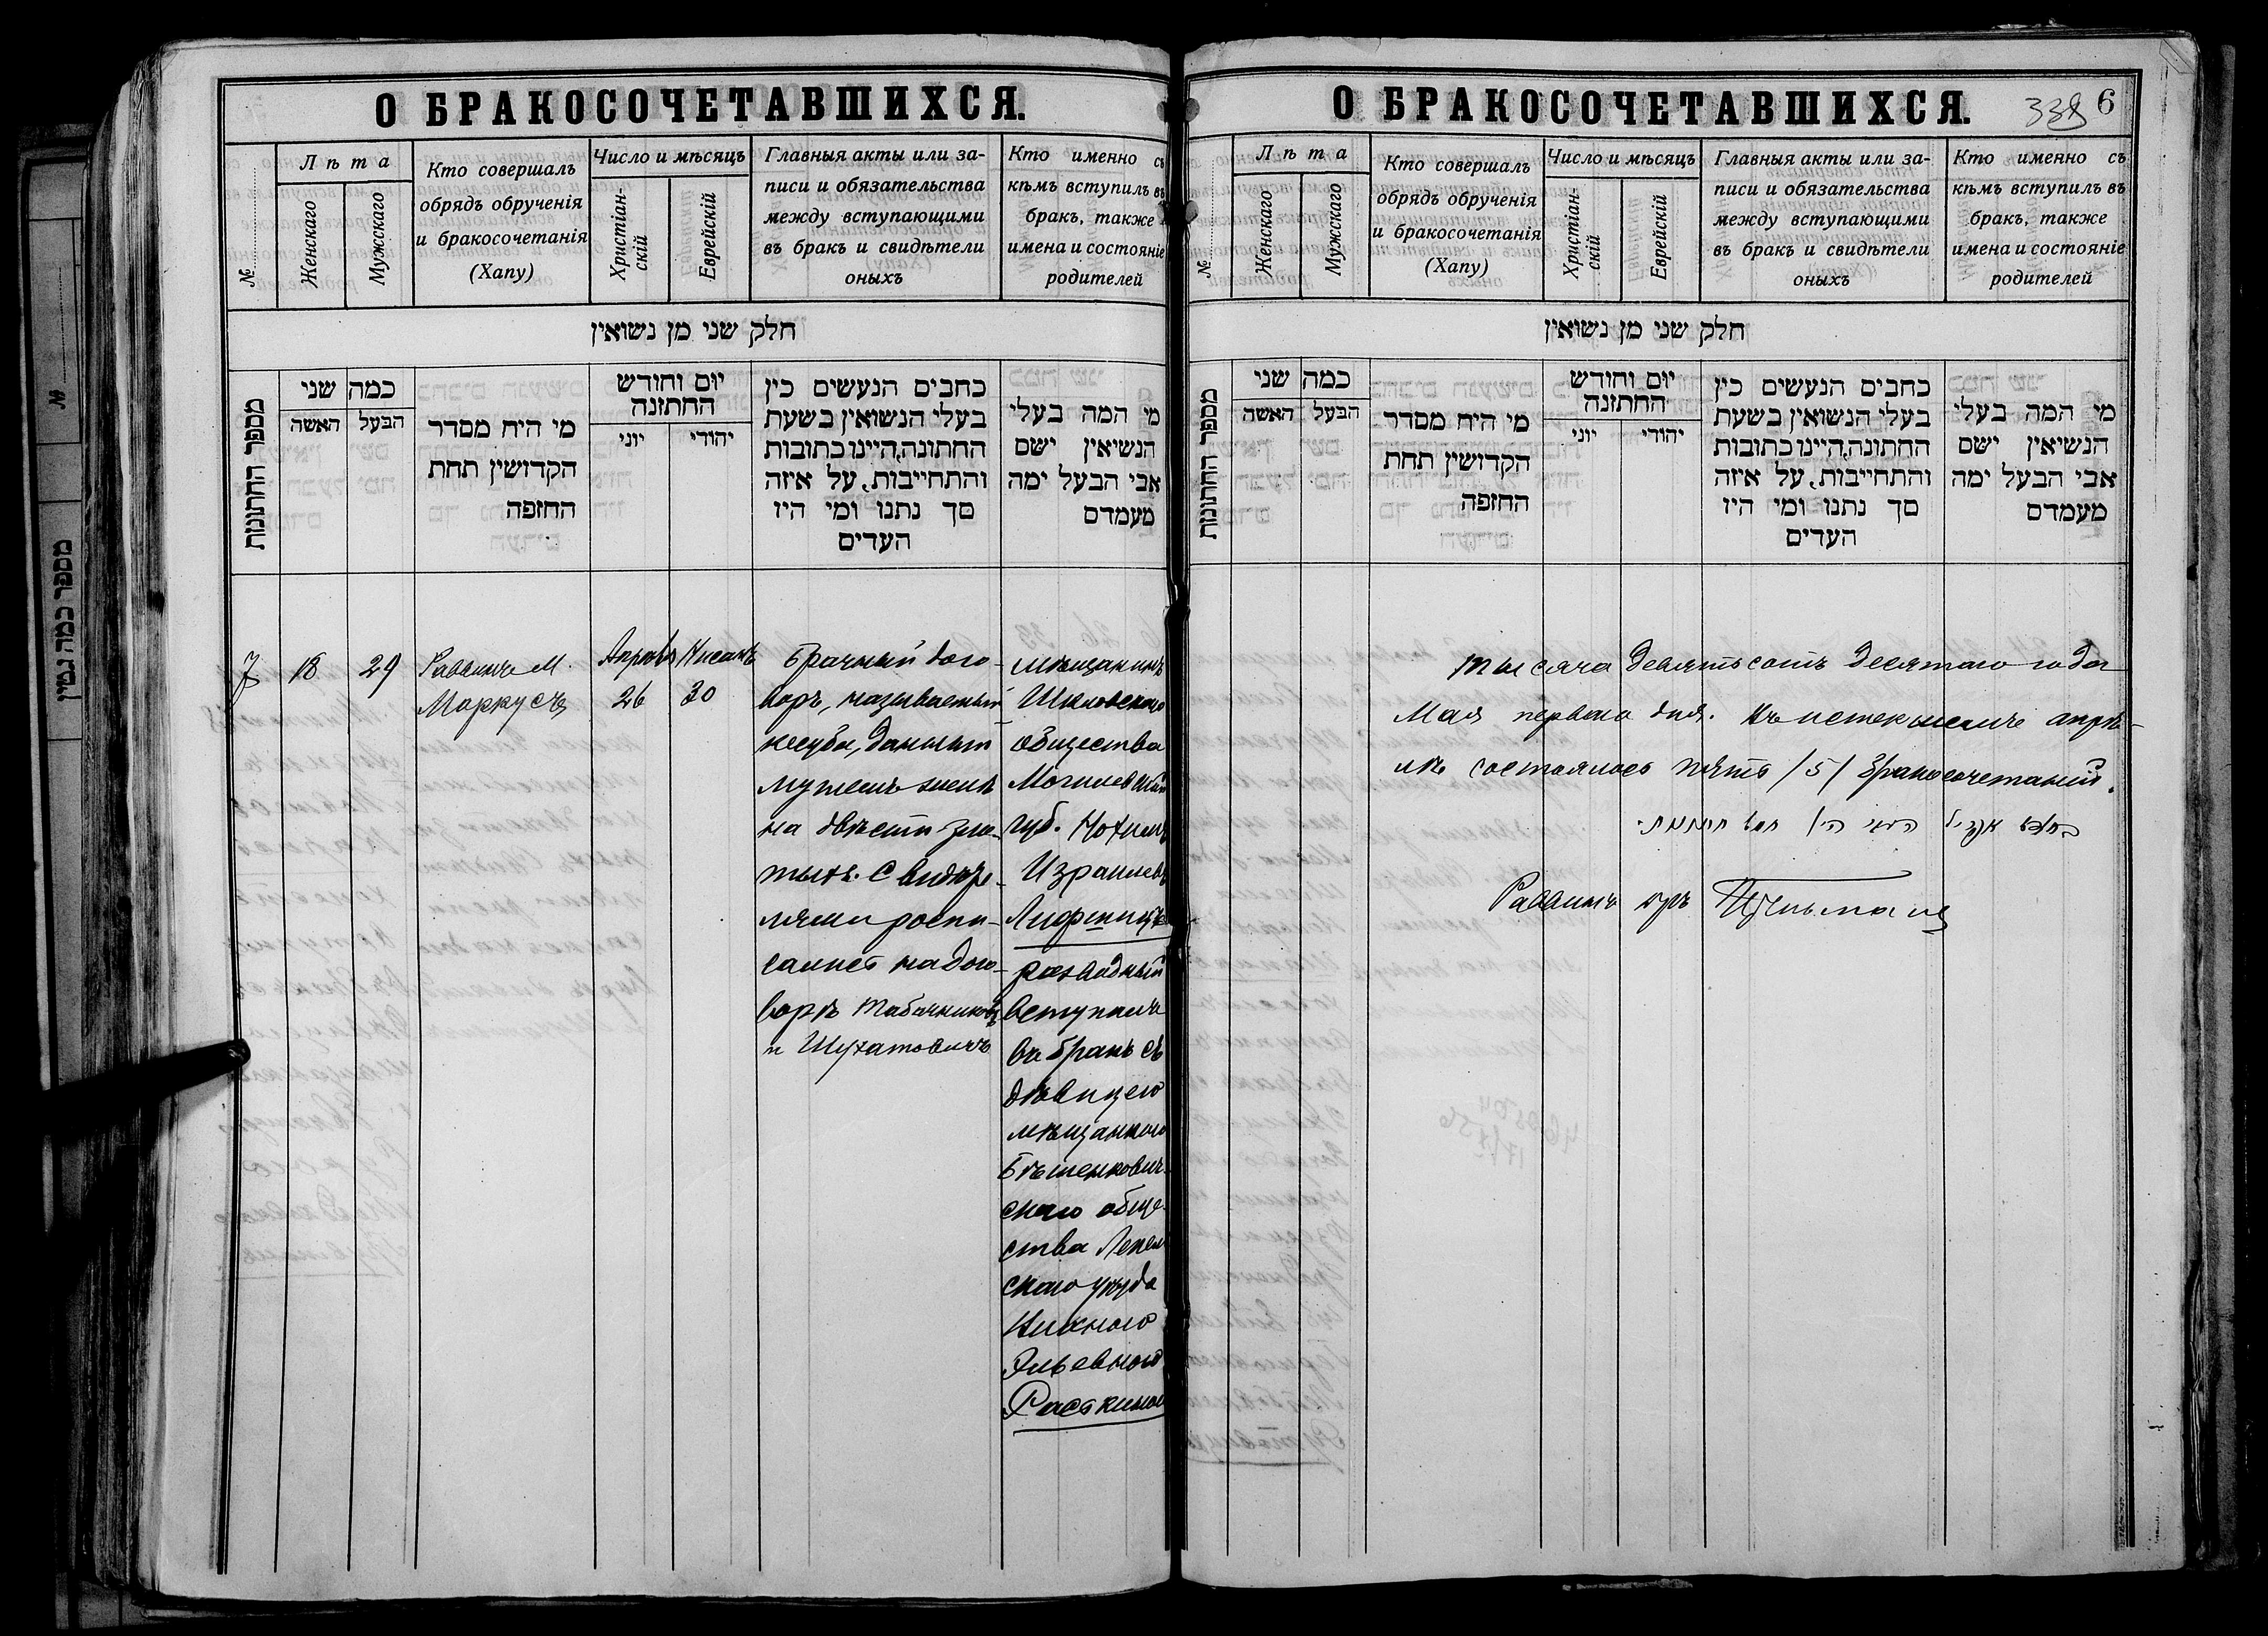 О БРАКОСОЧЕТАВШИХСЯ.
№
Лѣта
Женскаго
Мужскаго
Кто совершалъ
обрядъ обрученія
и бракосочетанія
(Хапу)
Число и мѣсяцъ
Христіан-
скій
Еврейскій
Главныя акты или за-
писи и обязательства
между вступающими
въ бракъ и свидѣтели
оныхъ
Кто именно съ
кѣмъ вступилъ въ
бракъ, также
имена и состояніе
родителей
חלק שני מן נשואין
מספר החתונות
כמה שני
האשה
הבעל
מי היח מסדר
הקדושין תחת
החופה
יום וחודש
החתונה
יוני
יהודי
כחבים הנעשים כין
בעלי הנשואין בשעת
החתונה,היינו כתובות
והתחייבות, על איזה
סך נתנו ומי היו
העדים
מי המה בעלי
הנשיאין ישם
אבי הבעל ימה
מעמדם
7
18
29
Раввинъ М.
Маркусъ
Апрѣля
26
Нисанъ
30
Брачный дого-
воръ, называемый
кесуба, данный
мужемъ женѣ
на двѣсти зло-
тыхъ. Свидѣте-
лями роспи-
сались на дого-
ворѣ Табачниковъ
и Шухатовичъ
мѣщанинъ
Шкловскаго
общества
Могилевской
губ. Нохимъ
Израилевъ
Лифшицъ
разводный
вступилъ
въ бракъ съ
дѣвицею
мѣщанкою
Бѣшенкович-
скаго обще-
ства Лепель
скаго уѣзда
Эльевною
Раскиною
О БРАКОСОЧЕТАВШИХСЯ.
338
6
№
Лѣта
Женскаго
Мужскаго
Кто совершалъ
обрядъ обрученія
и бракосочетанія
(Хапу)
Число и мѣсяцъ
Христіан-
скій
Еврейскій
Главныя акты или за-
писи и обязательства
между вступающими
въ бракъ и свидѣтели
оныхъ
Кто именно съ
кѣмъ вступилъ въ
бракъ, также
имена и состояніе
родителей
חלק שני מן נשואין
מספר החתונות
כמה שני
האשה
הבעל
מי היח מסדר
הקדושין תחת
החופה
יום וחודש
החתונה
יוני
יהודי
כחבים הנעשים כין
בעלי הנשואין בשעת
החתונה,היינו כתובות
והתחייבות, על איזה
סך נתנו ומי היו
העדים
מי המה בעלי
הנשיאין ישם
אבי הבעל ימה
מעמדם
Тысяча девятьсотъ десятаго года
Мая перваго дня. Въ истекшемъ апрѣ-
лѣ состоялось пять /5/ бракосочетаній.
Раввинъ
№
מספר כמה גטין